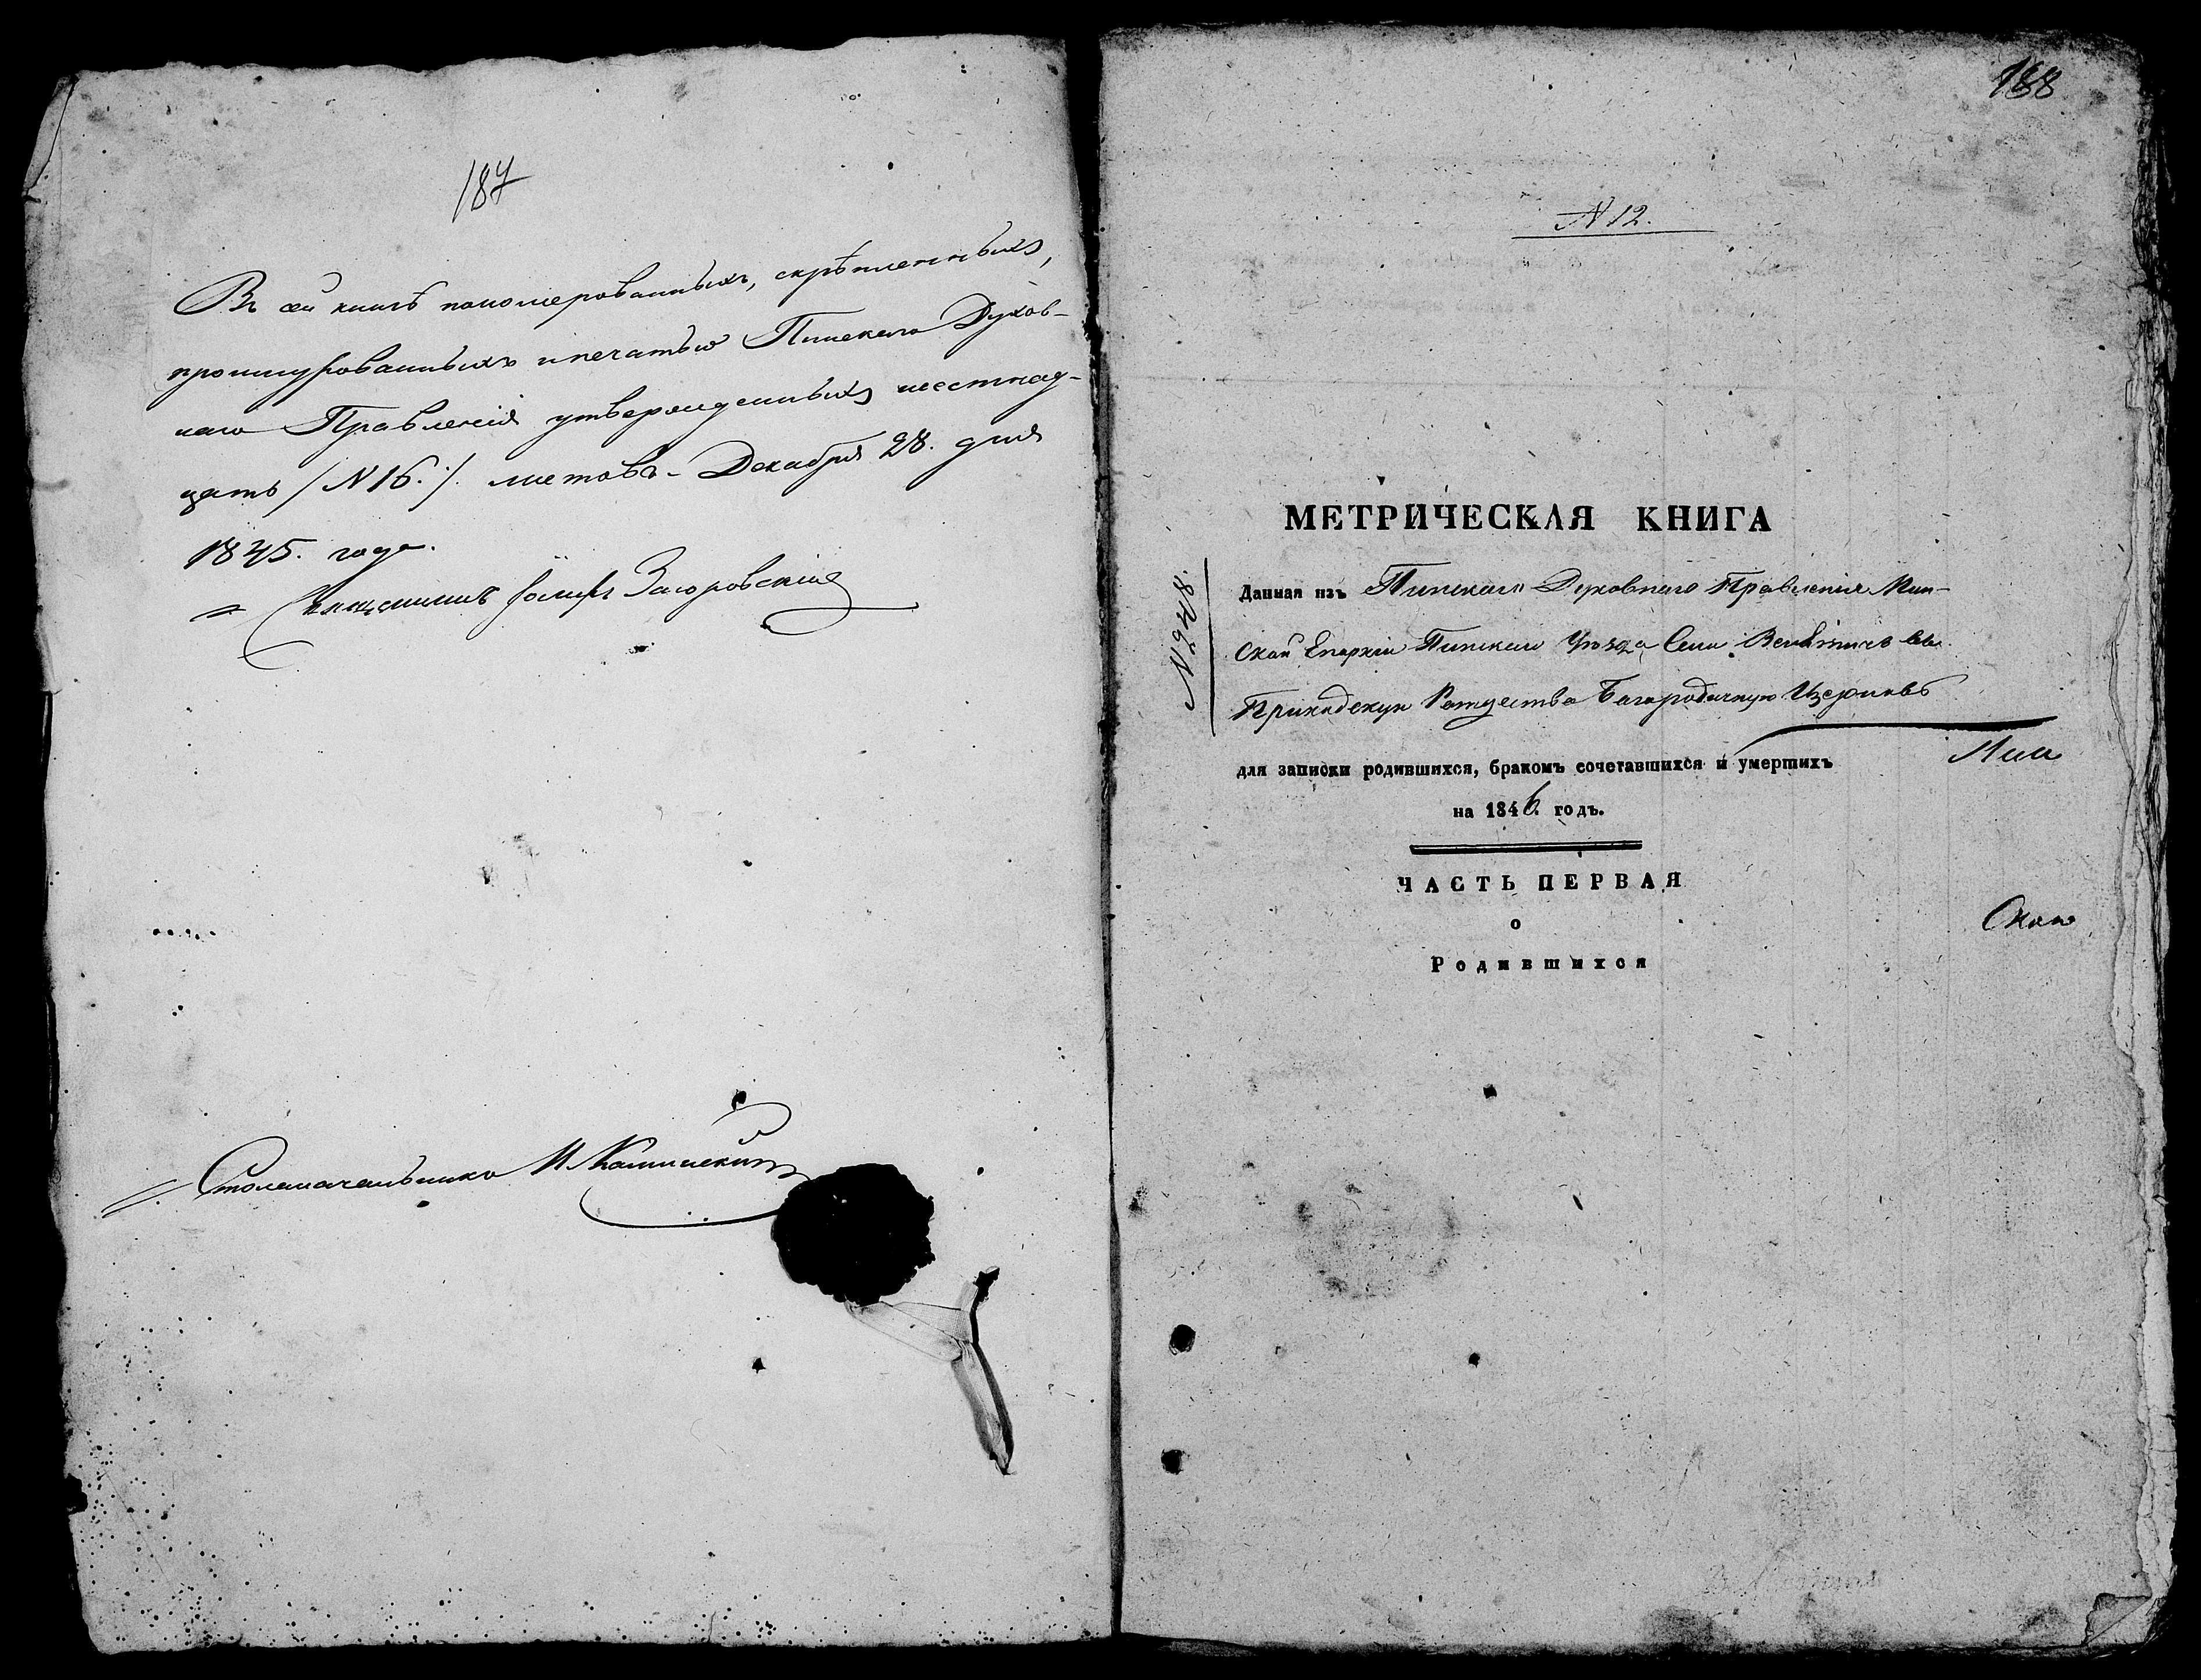 187
Въ сей книгѣ пономерованныхъ, скрѣпленныхъ,
прошнурованныхъ и печатью Пинскаго Духов-
наго Правленія утвержденныхъ шестнад-
цать /№ 16./. листовъ - Декабря 28. дня
1845. года.
Священникъ Іосифъ Загоровскій
Столоначальникъ И
188
№ 12.
МЕТРИЧЕСКАЯ КНИГА
№ 2948.
Данная изъ Пинскаго Духовнаго Правленія Мин-
ской Епархіи Пинскаго Уѣзда Села Велятичъ въ
Приходскую Рождества Богородичную Церковь
для записки родившихся, бракомъ сочетавшихся и умершихъ
на 1846. годъ.
ЧАСТЬ ПЕРВАЯ
о
Родившихся